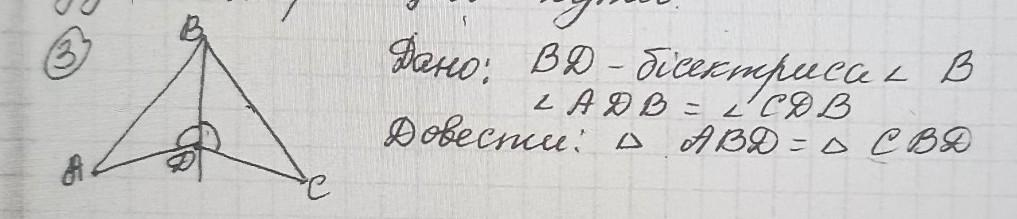 ③
B
A
D
C
Дано: BD - бісектриса ∠ B
∠ ADB = ∠ CDB
Довести: △ ABD = △ CBD